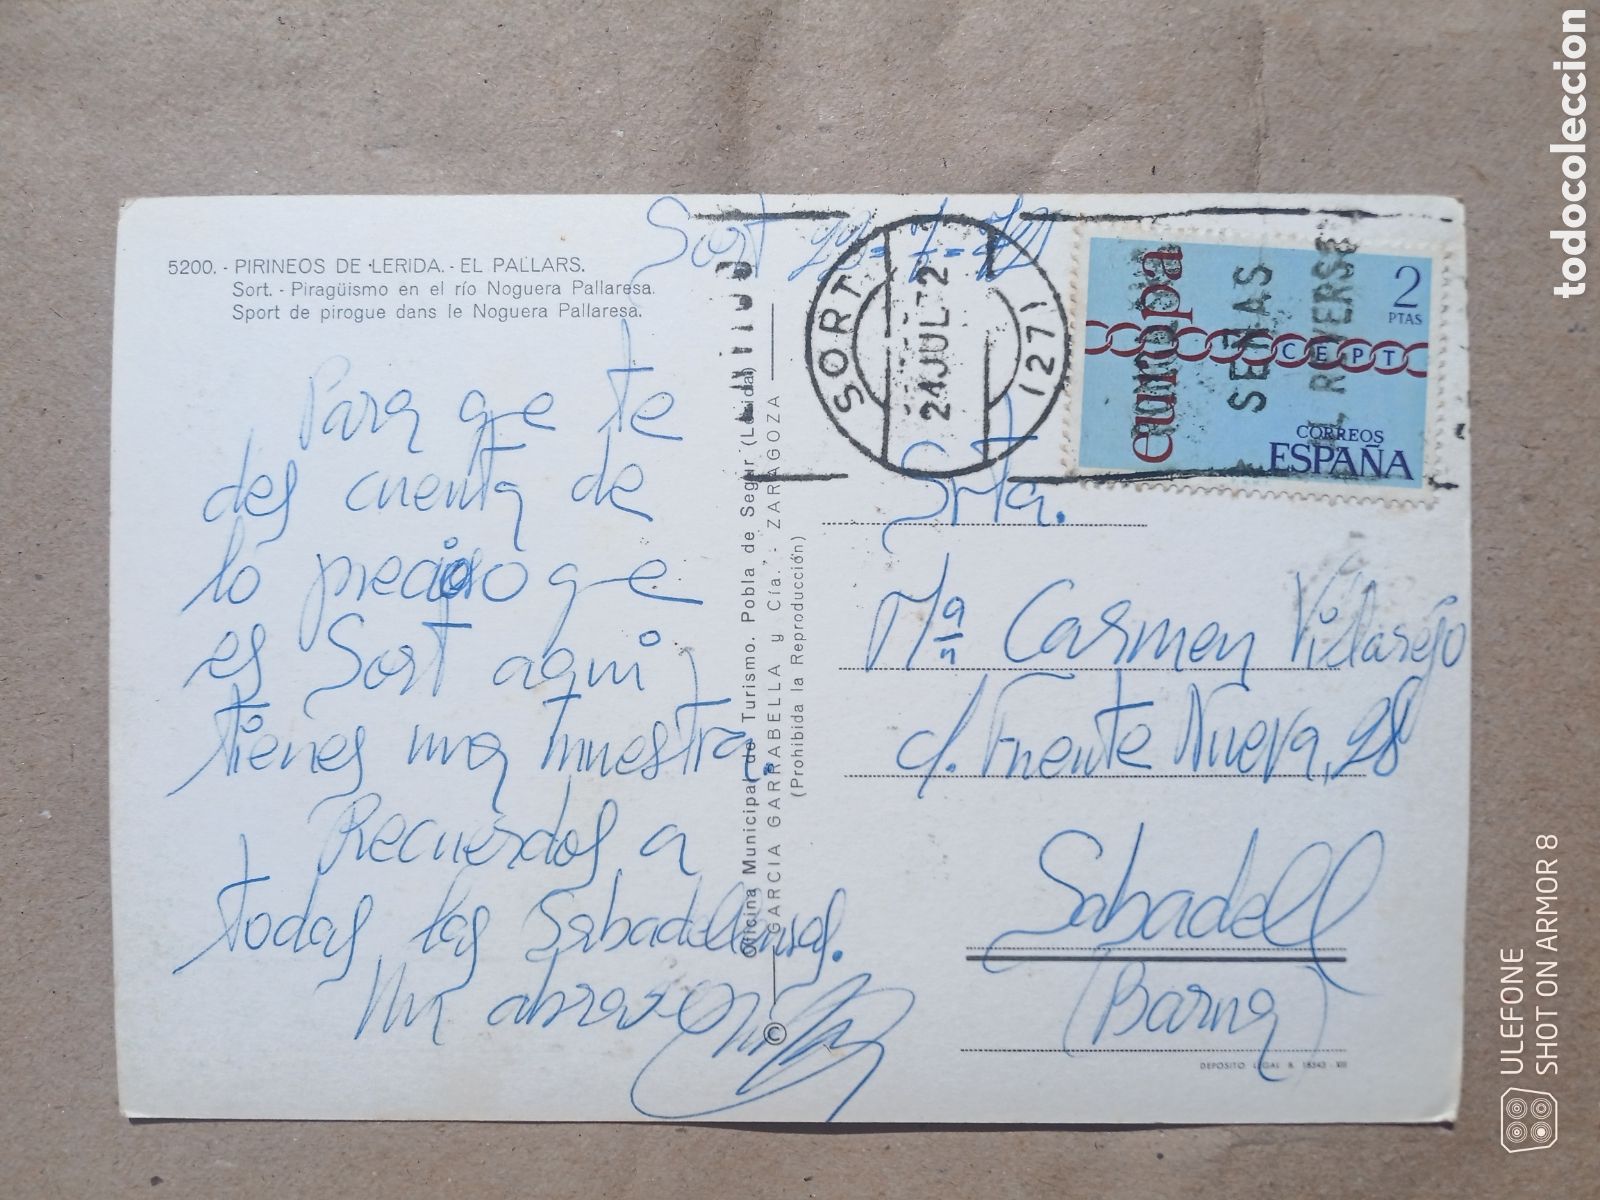 5200. - PIRINEOS DE LERIDA. - EL PALLARS.
Sort. - Piragüismo en el río Noguera Pallaresa.
Sport de pirogue dans le Noguera Pallaresa.
Sort 22-7-72
Para que te
des cuenta de
lo precioso que
es Sort aqui
tienes una muestra.
Recuerdos a
todas las Sabadellensas.
Un abrazo
Oficina Municipal de Turismo. Pobla de Segur (Lerida)
© GARCIA GARRABELLA y Cía. - ZARAGOZA
(Prohibida la Reproducción)
SORT
24 JUL 72
(271)
SEÑAS
AL REVERSO
europa
2
PTAS
CEPT
CORREOS
ESPAÑA
Srta.
Mª Carmen Villarejo
c/. Fuente Nueva, 28
Sabadell
(Barna)
DEPOSITO LEGAL B. 18343 - XII
todocoleccion
ULEFONE
SHOT ON ARMOR 8